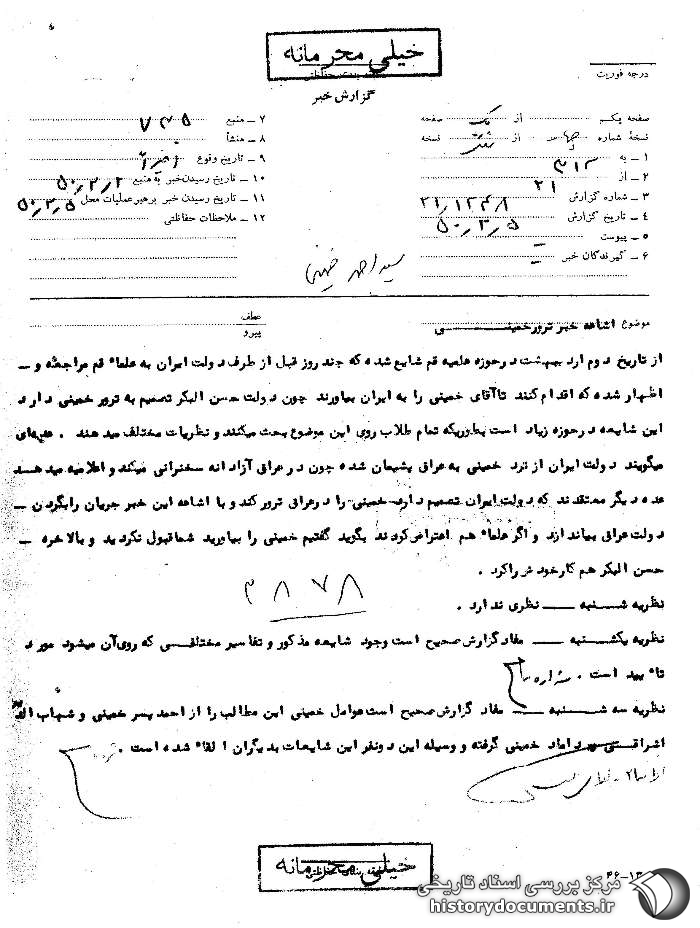 خیلی محرمانه
درجه فوریت
گزارش خبر
صفحه یکم از یک صفحه
نسخهٔ شماره چهار از نسخه
۱ ـ به ۳۱۲
۲ ـ از ۲۱
۳ ـ شماره گزارش ۲۱٫۱۲۴۸
۴ ـ تاریخ گزارش ۵۰٫۳٫۵
۵ ـ پیوست
۶ ـ گیرندگان خبر
۷ ـ منبع ۷۴۵
۸ ـ منشأ
۹ ـ تاریخ وقوع
۱۰ ـ تاریخ رسیدن خبر به منبع ۵۰٫۳٫۲
۱۱ ـ تاریخ رسیدن خبر برهبر عملیات محل ۵۰٫۳٫۵
۱۲ ـ ملاحظات حفاظتی
سید احمد خمینی
عطف
پیرو
موضوع اشاعه خبر ترور خمینی
از تاریخ دوم اردیبهشت درحوزه علمیه قم شایع شده که چند روز قبل از طرف دولت ایران به علماء قم مراجعه و ـ
اظهار شده که اقدام کنند تا آقای خمینی را به ایران بیاورند چون دولت حسن البکر تصمیم به ترور خمینی دارد
این شایعه درحوزه زیاد است بطوریکه تمام طلاب روی این موضوع بحث میکنند و نظریات مختلف میدهند . عده‌ای
میگویند دولت ایران از خمینی به عراق پشیمان شده چون در عراق آزادانه سخنرانی میکند و اعلامیه میدهد
عده دیگر معتقدند که دولت ایران تصمیم دارد خمینی را درعراق ترور کند و با اشاعه این خبر جریان را بگردن ـ
دولت عراق بیاندازد و اگر علماء هم اعتراض کردند بگوید گفتیم خمینی را بیاورید شما قبول نکردید و بالاخره ـ
حسن البکر هم کار خودش را کرد .
۳۸۷۸
نظریه شنبه ـــ نظری ندارد .
نظریه یکشنبه ـــ مفاد گزارش صحیح است وجود شایعه مذکور و تفاسیر مختلفی که روی آن میشود مورد
تائید است .
نظریه سه شنبه ـــ مفاد گزارش صحیح است عوامل خمینی این مطالب را از احمد پسر خمینی و شهاب الدین
اشراقی داماد خمینی گرفته و وسیله این دونفر این شایعات بدیگران القاء شده است .
خیلی محرمانه
مرکز بررسی اسناد تاریخی
historydocuments.ir